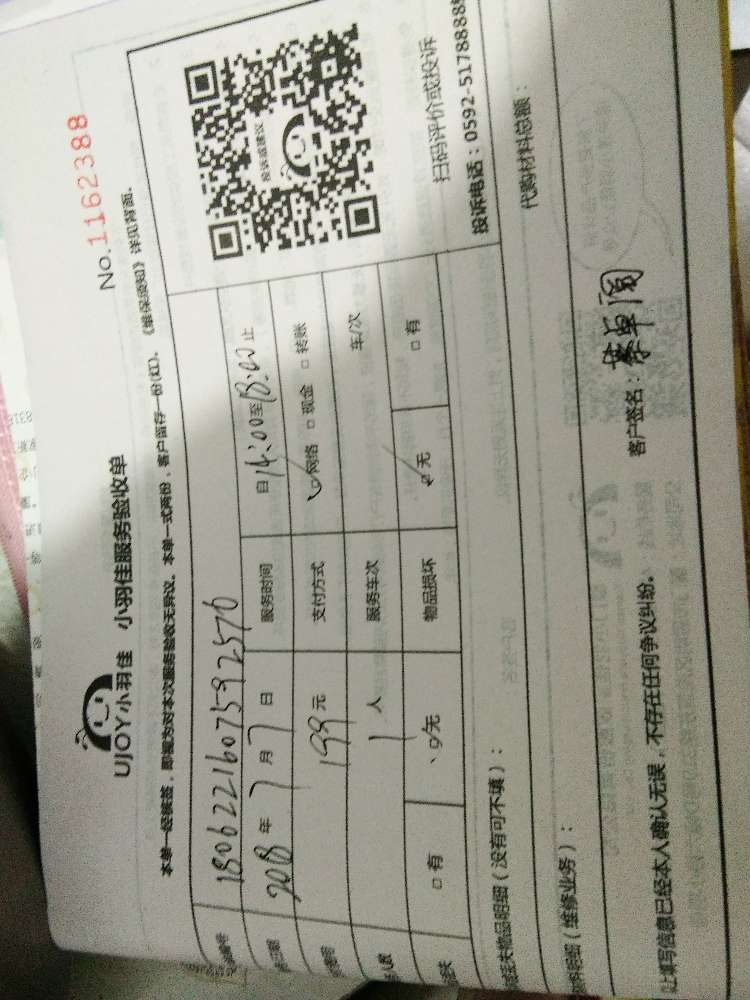 UJOY小羽佳 小羽佳服务验收单
No.1162388
本单一经核签，即视为对本次服务验收无异议。本单一式两份，客户留存一份(红)。《维保须知》详见背面。
2018年7月7日 服务时间 自14:00至18:00止
199元 支付方式 ☑网络 □现金 □转账
1人 服务车次 车/次
□有 ☑无 物品损坏 ☑无 □有
投诉或建议
扫码评价或投诉
投诉电话：0592-5178888
物品明细（没有可不填）：
代购材料总额：
明细（维修业务）：
填写信息已经本人确认无误，不存在任何争议纠纷。 客户签名：